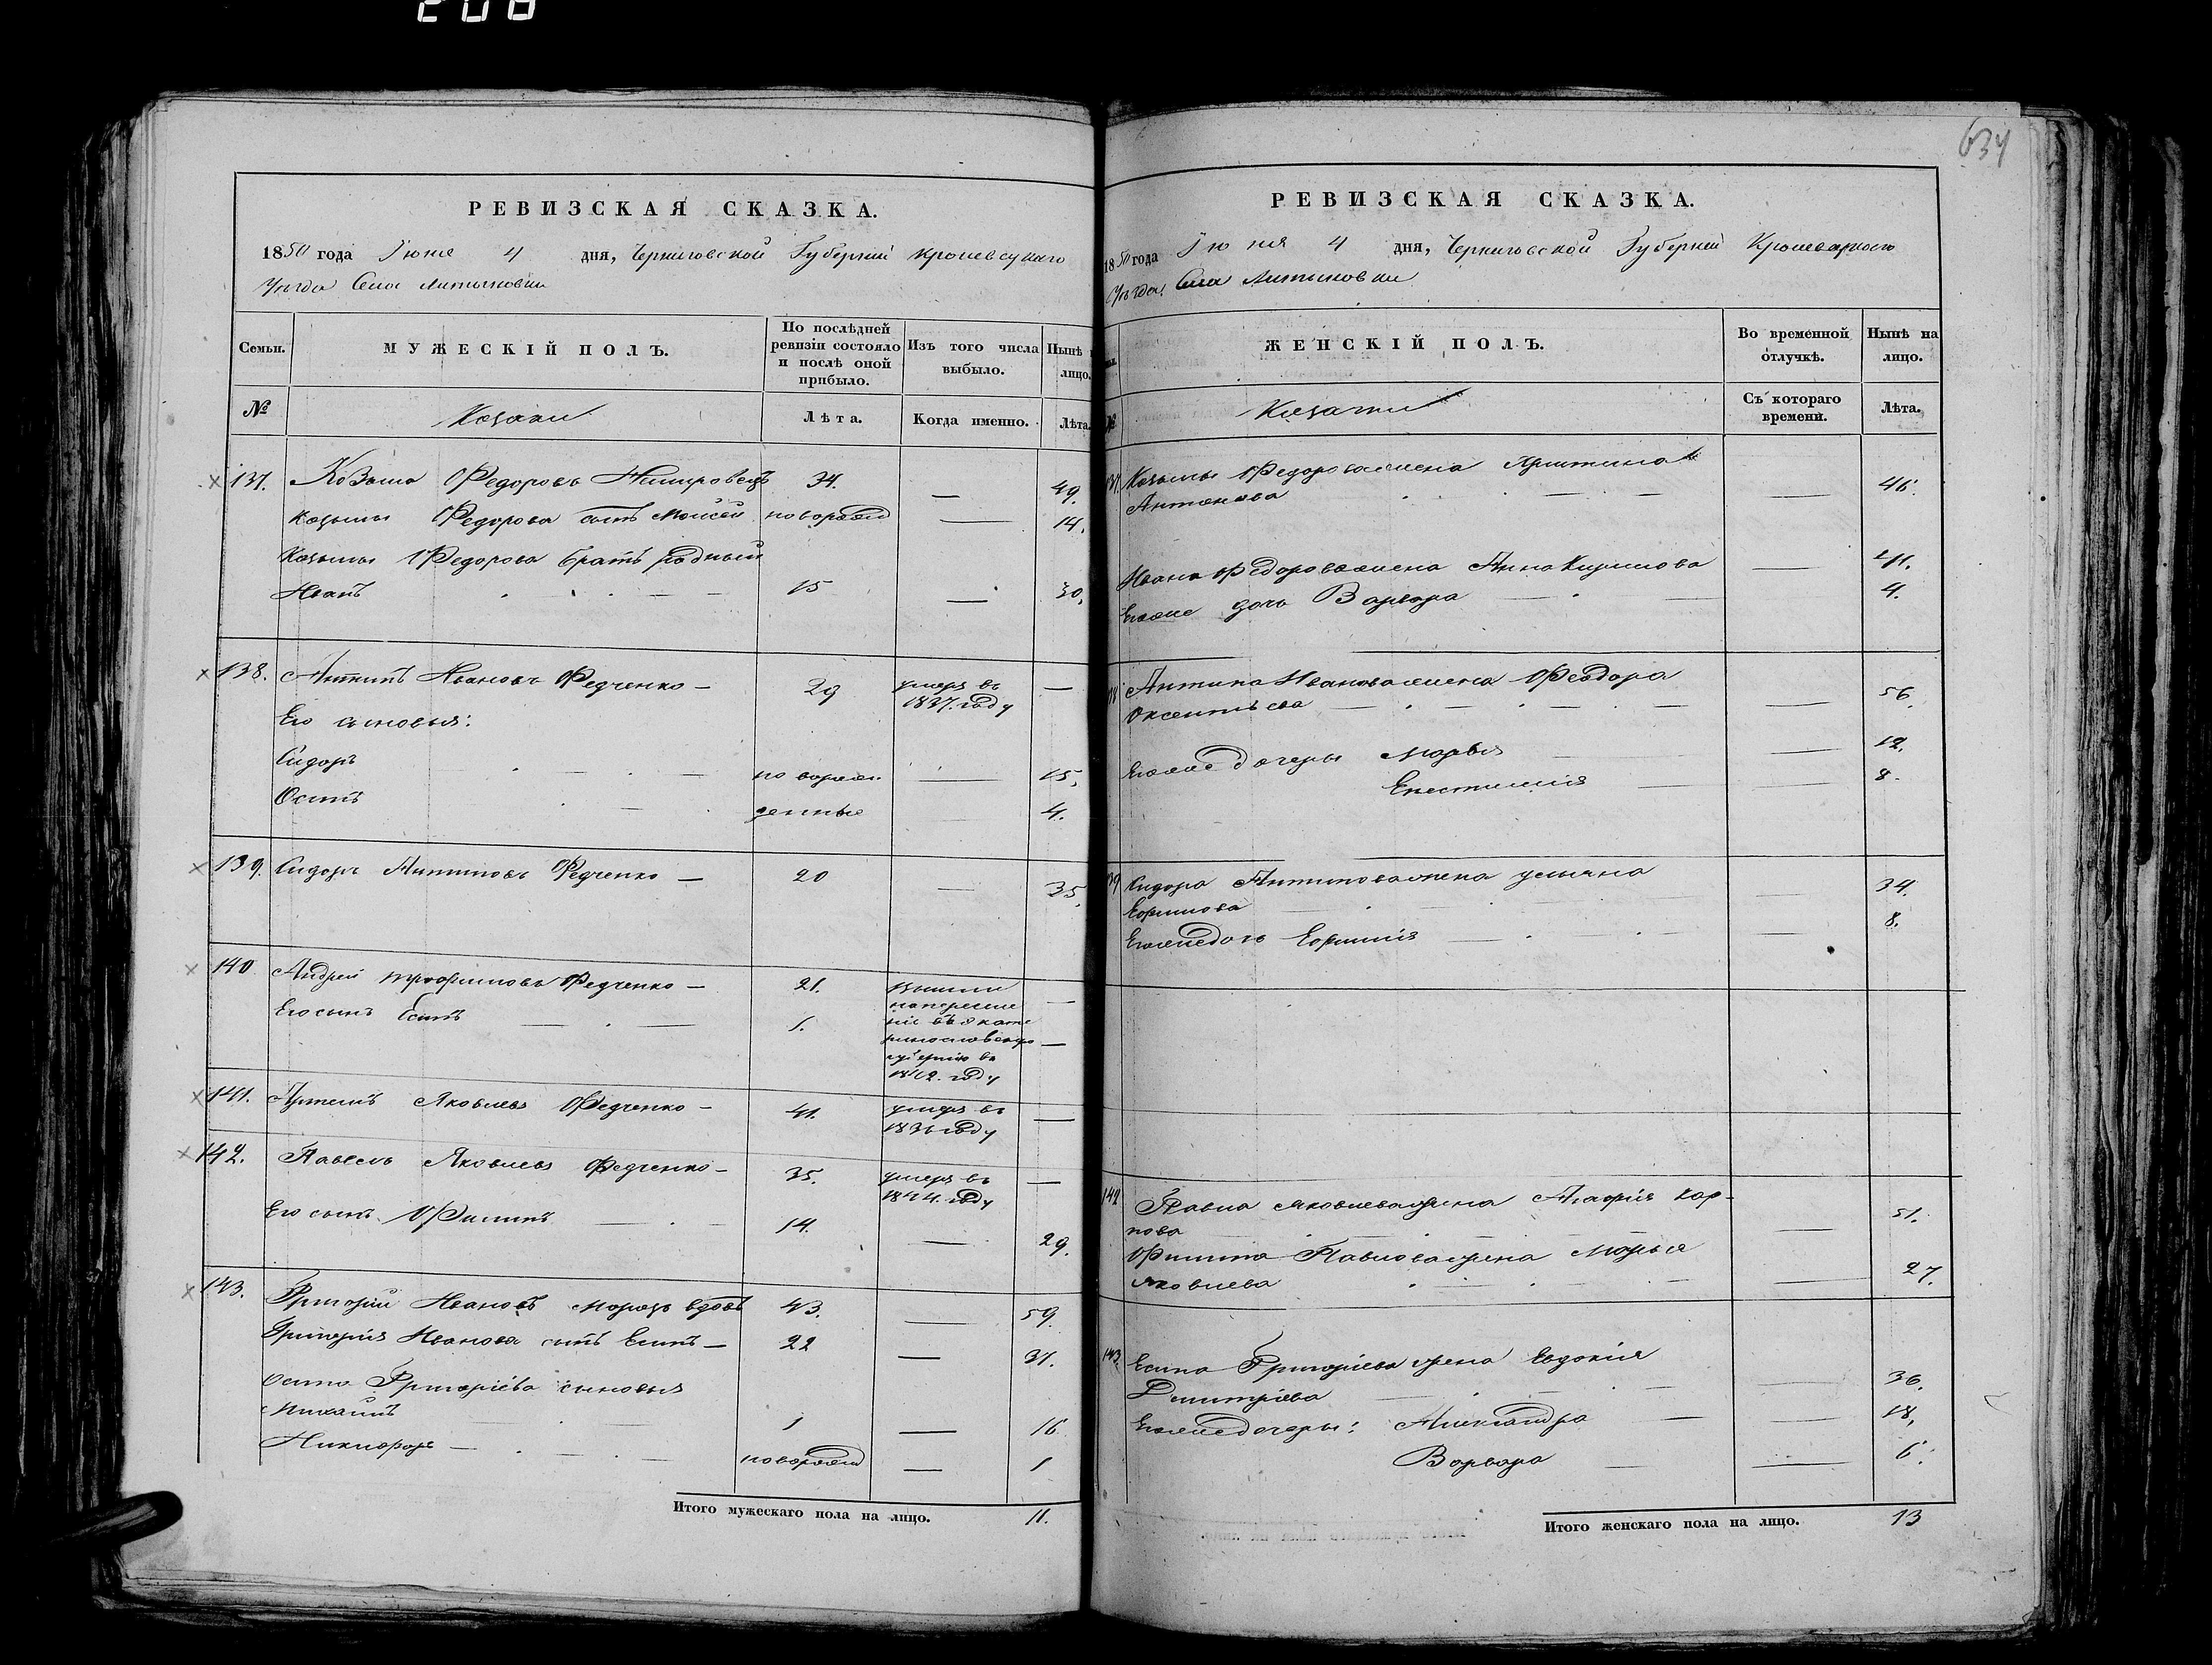 208
РЕВИЗСКАЯ СКАЗКА.
1850 года Іюня 4 дня, Черниговской Губерніи Кролевецкаго
Уѣзда Села Литвиновки
Семьи.
МУЖЕСКІЙ ПОЛЪ.
По послѣдней
ревизіи состояло
и послѣ оной
прибыло.
Изъ того числа
выбыло.
Нынѣ
лицо.
№
Козаки
Лѣта.
Когда именно.
Лѣта.
137. Козьма Федоровъ 34. — 49.
Козьмы Федорова сынъ Моисей новорожд — 14.
Козьмы Федорова братъ родный
Иванъ 15 — 30.
138. Антипъ Ивановъ Федченко — 29 умеръ въ —
1837. году
Его сыновья:
Сидоръ новорож — 15.
Осипъ денные 4.
139. Сидоръ Антиповъ Федченко — 20 — 35.
140 Андрей Трофимовъ Федченко — 21. Вышли —
на переселе
Его сынъ Есипъ — 1. ніе въ Екате
ринославскую —
губернію въ
1842. году
141. Артемъ Яковлевъ Федченко — 41. умеръ въ —
1836 году
142. Павелъ Яковлевъ Федченко — 35. умеръ въ —
1844. году
Его сынъ Филипъ — 14. — 29.
143. Григорій Ивановъ Морозъ вдовъ 43. — 59.
Григорія Иванова сынъ Есипъ — 22 — 37.
Осипа Григоріева сыновья
Михаилъ 1 — 16
Никифоръ — новорожд — 1
Итого мужескаго пола на лицо. 11.
634
РЕВИЗСКАЯ СКАЗКА.
1850 года Іюня 4 дня, Черниговской Губерніи Кролевецкаго
Уѣзда, Села Литвиновки
ЖЕНСКІЙ ПОЛЪ.
Во временной
отлучкѣ.
Нынѣ на
лицо.
№
Козачки
Съ котораго
времени.
Лѣта.
137. Козьмы Федорова жена Христина
Антонова — 46.
Ивана Федорова жена Анна Климова — 41.
Егоже дочь Варвара — 4.
138 Антипа Иванова жена Феодора
Оксентьева — 56.
Егоже дочери Марья — 12.
Епестимія — 8.
139 Сидора Антипова жена Ульяна
Ефимова — 34.
Егоже дочь Ефимія — 8.
142 Павла Яковлева жена Агафія Кар-
пова — 51.
Филипа Павлова жена Марья
Яковлева — 27.
143 Есипа Григоріева жена Евдокія
Дмитріева — 36.
Егоже дочери: Александра — 18.
Варвара — 6.
Итого женскаго пола на лицо. 13